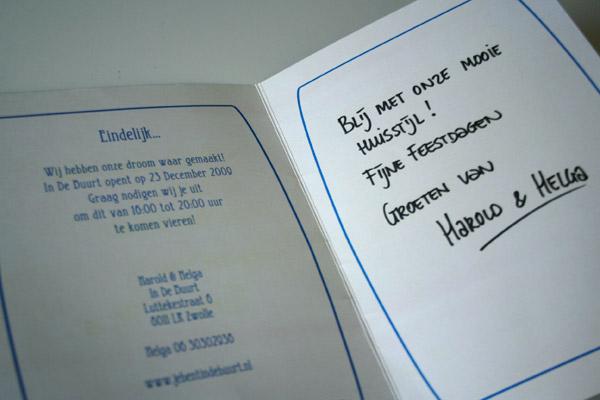 Eindelijk...
Wij hebben onze droom waar gemaakt!
In De Buurt opent op 23 December 2009
Graag nodigen wij je uit
om dit van 16:00 tot 20:00 uur
te komen vieren!
Harold & Helga
In De Buurt
Luttekestraat 6
8011 LR Zwolle
Helga 06 30302036
www.jebentindebuurt.nl
BLIJ MET ONZE MOOIE
HUISSTIJL!
FIJNE FEESTDAGEN
GROETEN VAN
HAROLD & HELGA